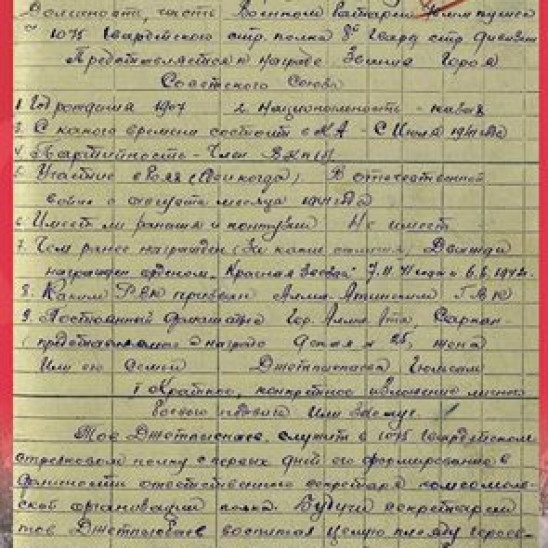 Должность, часть Военком батареи
1075 Гвардейского стр. полка 8й Гвард стр дивизии
Представляется к награде Звания Героя
Советского Союза
1. Год рождения 1907 2. Национальность - казах
3. С какого времени состоит в КА - С Июля 1941
4. Партийность - Член ВКП(б)
5. Участие в боях (где и когда) В отечественной
войне с августа месяца 1941 года
6. Имеет ли ранения и контузии Не имеет
7. Чем ранее награжден (за какие отличия) Дважды
награжден орденом „Красная Звезда" 7.11.41 года и 6.6.1942.
8. Каким РВК призван Алма-Атинским ГВК
9. Постоянный адрес Гор. Алма Ата
представляемого к награде 25, жена
или его семьи
1 Краткое, конкретное изложение личного
боевого подвига или заслуг.
Тов служит в 1075 Гвардейском
стрелковом полку с первых дней его формирования в
должности ответственного секретаря комсомоль-
ской организации полка. Будучи секретарем
тов воспитал целую плеяду героев-